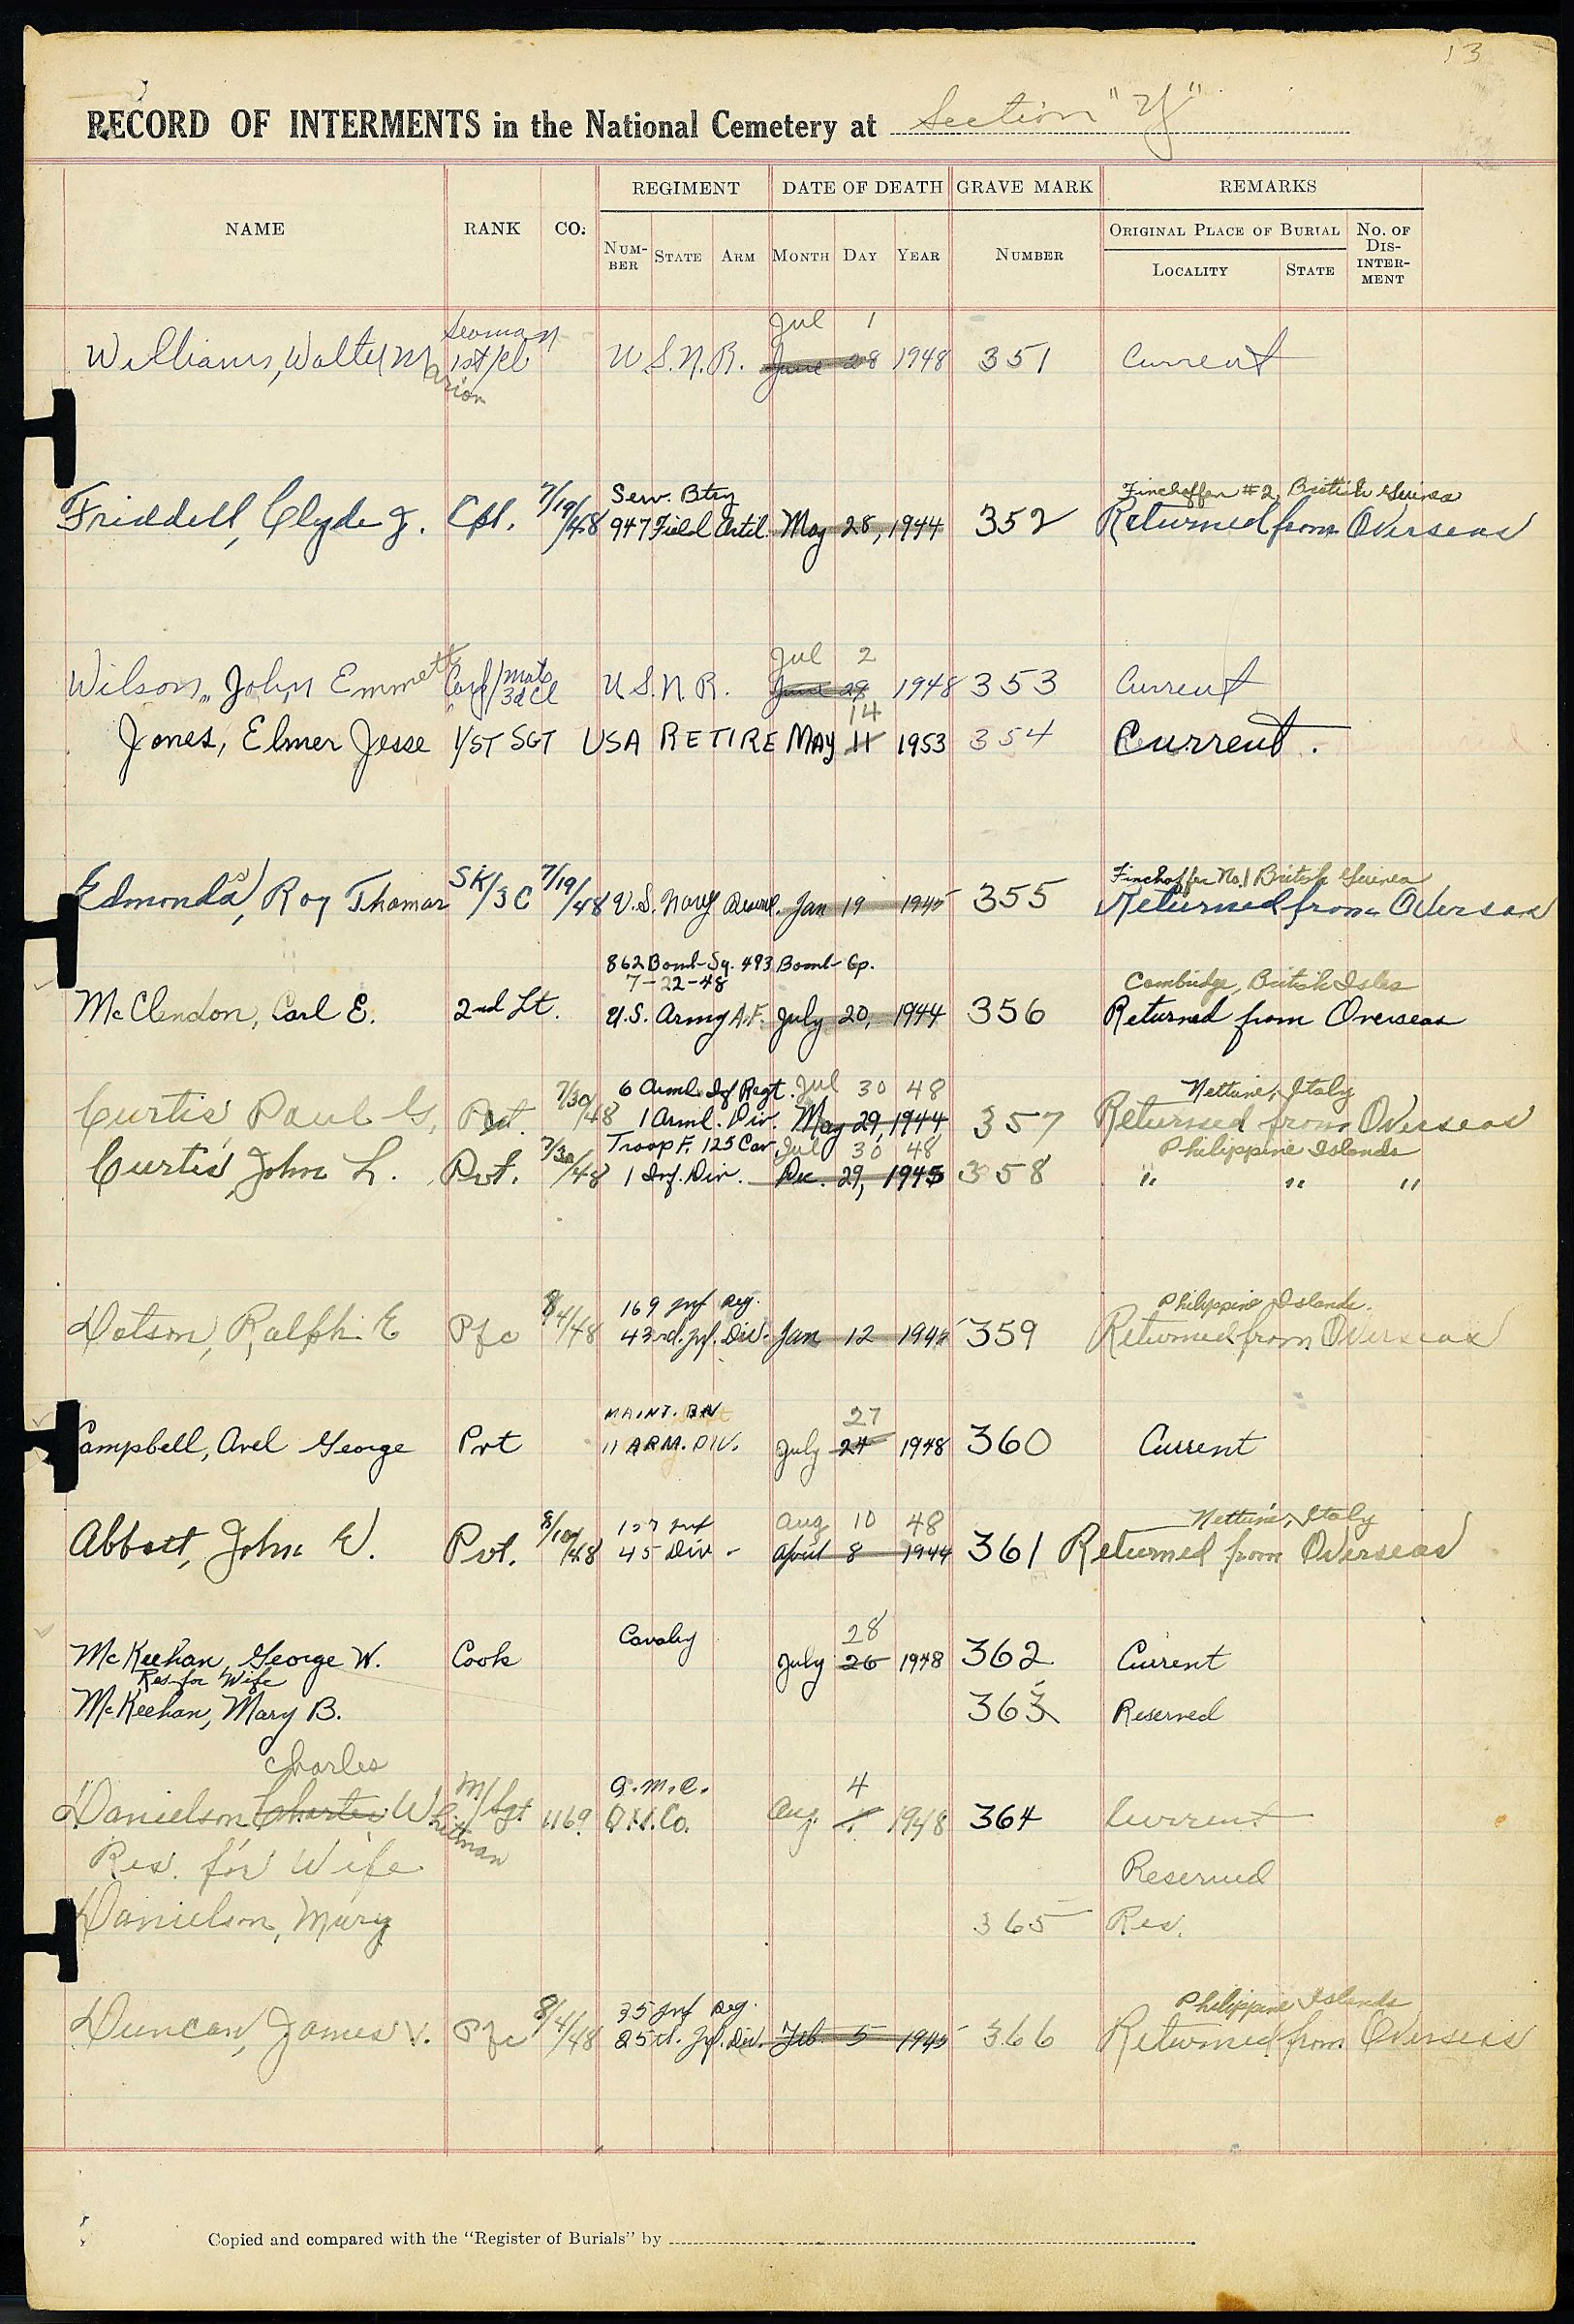 13
RECORD OF INTERMENTS in the National Cemetery at Section "Y"
REGIMENT DATE OF DEATH GRAVE MARK REMARKS
NAME RANK CO. NUMBER STATE ARM MONTH DAY YEAR NUMBER ORIGINAL PLACE OF BURIAL NO. OF DISINTERMENT
LOCALITY STATE
Seaman Jul 1
Williams, Walter Marion 1st/cl U.S.N.R. June 28 1948 351 Current
7/19/48 Serv. Btry Finchoffen #2, British Guinea
Friddell, Clyde J. Cpl. 947 Field Artil. May 28, 1944 352 Returned from Overseas
Jul 2
Wilson, John Emmett Mate 3d Cl U.S.N.R. June 29 1948 353 Current
14
Jones, Elmer Jesse 1/ST SGT USA RETIRE MAY 11 1953 354 Current.
Finchoffen No.1 British Guinea
Edmonds, Roy Thomas SK/3C 7/19/48 U.S. Navy Reserve. Jan 19 1945 355 Returned from Overseas
862 Bomb Sq. 493 Bomb Gp.
7-22-48 Cambridge, British Isles
McClendon, Carl E. 2nd Lt. U.S. Army A.F. July 20, 1944 356 Returned from Overseas
6 Arml. Inf Regt. Jul 30 48 Nettuno, Italy
Curtis Paul G. Pvt. 7/30/48 1 Arml. Div. May 29, 1944 357 Returned from Overseas
Troop F, 125 Cav. Jul 30 48 Philippine Islands
Curtis, John L. Pvt. 7/30/48 1 Inf. Div. Dec. 29, 1945 358 " " "
169 Inf Reg. Philippine Islands.
Dotson, Ralph E Pfc 8/4/48 43rd. Inf. Div. Jan 12 1945 359 Returned from Overseas
MAINT. BN 27
Campbell, Avel George Pvt 11 ARM. DIV. July 24 1948 360 Current
Aug 10 48 Nettuno, Italy
Abbott, John W. Pvt. 8/10/48 45 Div - April 8 1944 361 Returned from Overseas
Cavalry 28
McKeehan, George W. Cook July 26 1948 362 Current
Res for Wife
McKeehan, Mary B. 363 Reserved
Charles
Q.M.C. 4
Danielson, Charles Whitman M/Sgt 1169 Aug. 1 1948 364 Current
Res. for Wife Reserved
Danielson, Mary 365 Res.
35 Inf Reg. Philippine Islands
Duncan, James V. Pfc 8/4/48 25th. Inf. Div. Feb 5 1945 366 Returned from Overseas
Copied and compared with the "Register of Burials" by